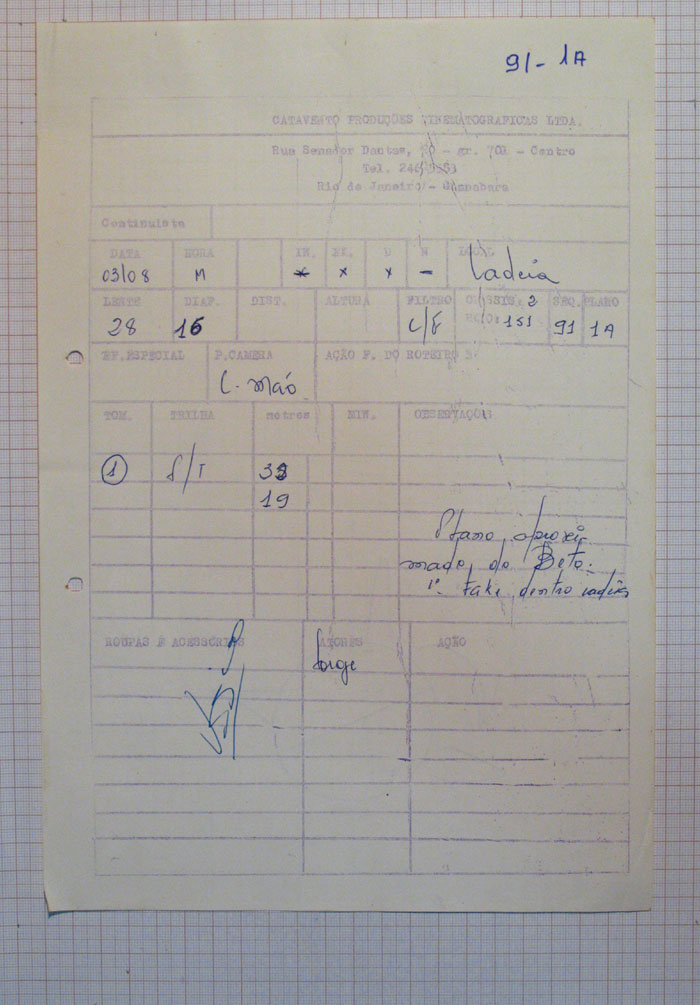 91-1A
CATAVENTO PRODUÇÕES CINEMATOGRAFICAS LTDA.
Rua Senador Dantas, 20 - gr. 701 - Centro
Tel. 246
Rio de Janeiro - Guanabara
Continuista
DATA HORA IN. EX. D N LOCAL
03/08 M x x x - Cadeia
LENTE DIAF. DIST. ALTURA FILTRO CHASSIS: 2 SEQ. PLANO
28 16 ROLO: 151 91 1A
EF.ESPECIAL P.CAMERA AÇÃO F. DO ROTEIRO
C. mão
TOM. TRILHA metros MIN. OBSERVAÇÕES
1 S/T
19
Plano aproxi
mado do Beto.
1º take dentro cadeia
ROUPAS E ACESSÓRIOS ATORES AÇÃO
Jorge